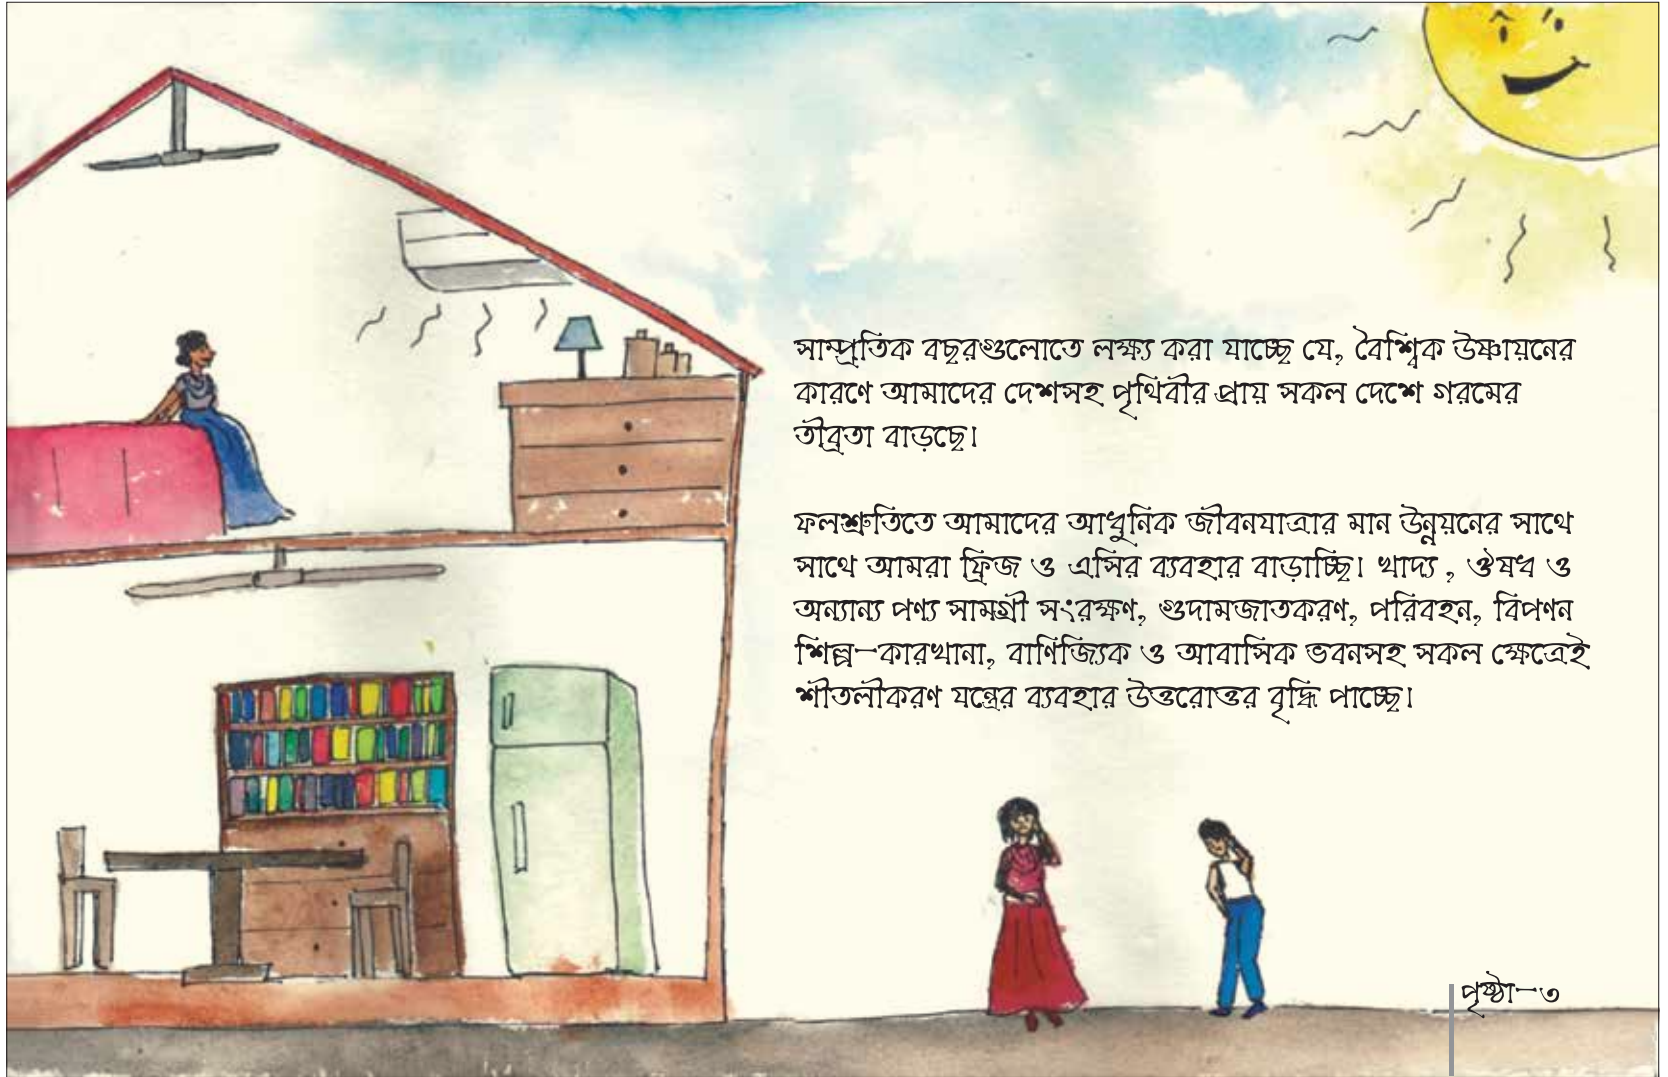 সাম্প্রতিক বছরগুলোতে লক্ষ্য করা যাচ্ছে যে, বৈশ্বিক উষ্ণায়নের
কারণে আমাদের দেশসহ পৃথিবীর প্রায় সকল দেশে গরমের
তীব্রতা বাড়ছে।
ফলশ্রুতিতে আমাদের আধুনিক জীবনযাত্রার মান উন্নয়নের সাথে
সাথে আমরা ফ্রিজ ও এসির ব্যবহার বাড়াচ্ছি। খাদ্য , ঔষধ ও
অন্যান্য পণ্য সামগ্রী সংরক্ষণ, গুদামজাতকরণ, পরিবহন, বিপণন
শিল্প-কারখানা, বাণিজ্যিক ও আবাসিক ভবনসহ সকল ক্ষেত্রেই
শীতলীকরণ যন্ত্রের ব্যবহার উত্তরোত্তর বৃদ্ধি পাচ্ছে।
পৃষ্ঠা-৩